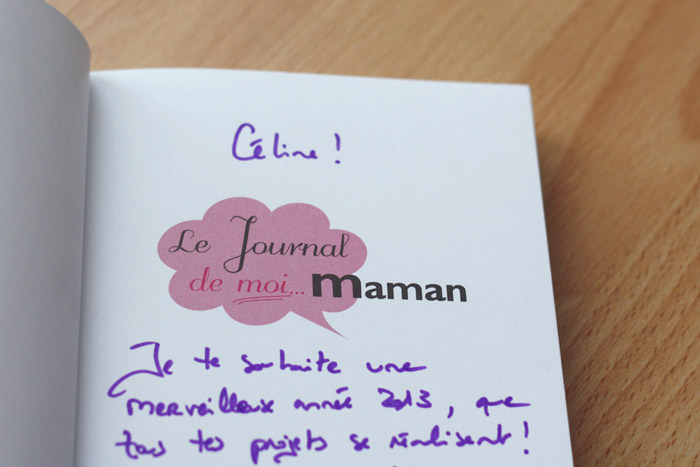 Céline !
Le Journal
de moi... maman
Je te souhaite une
merveilleux année 2013, que
tous tes projets se réalisent !